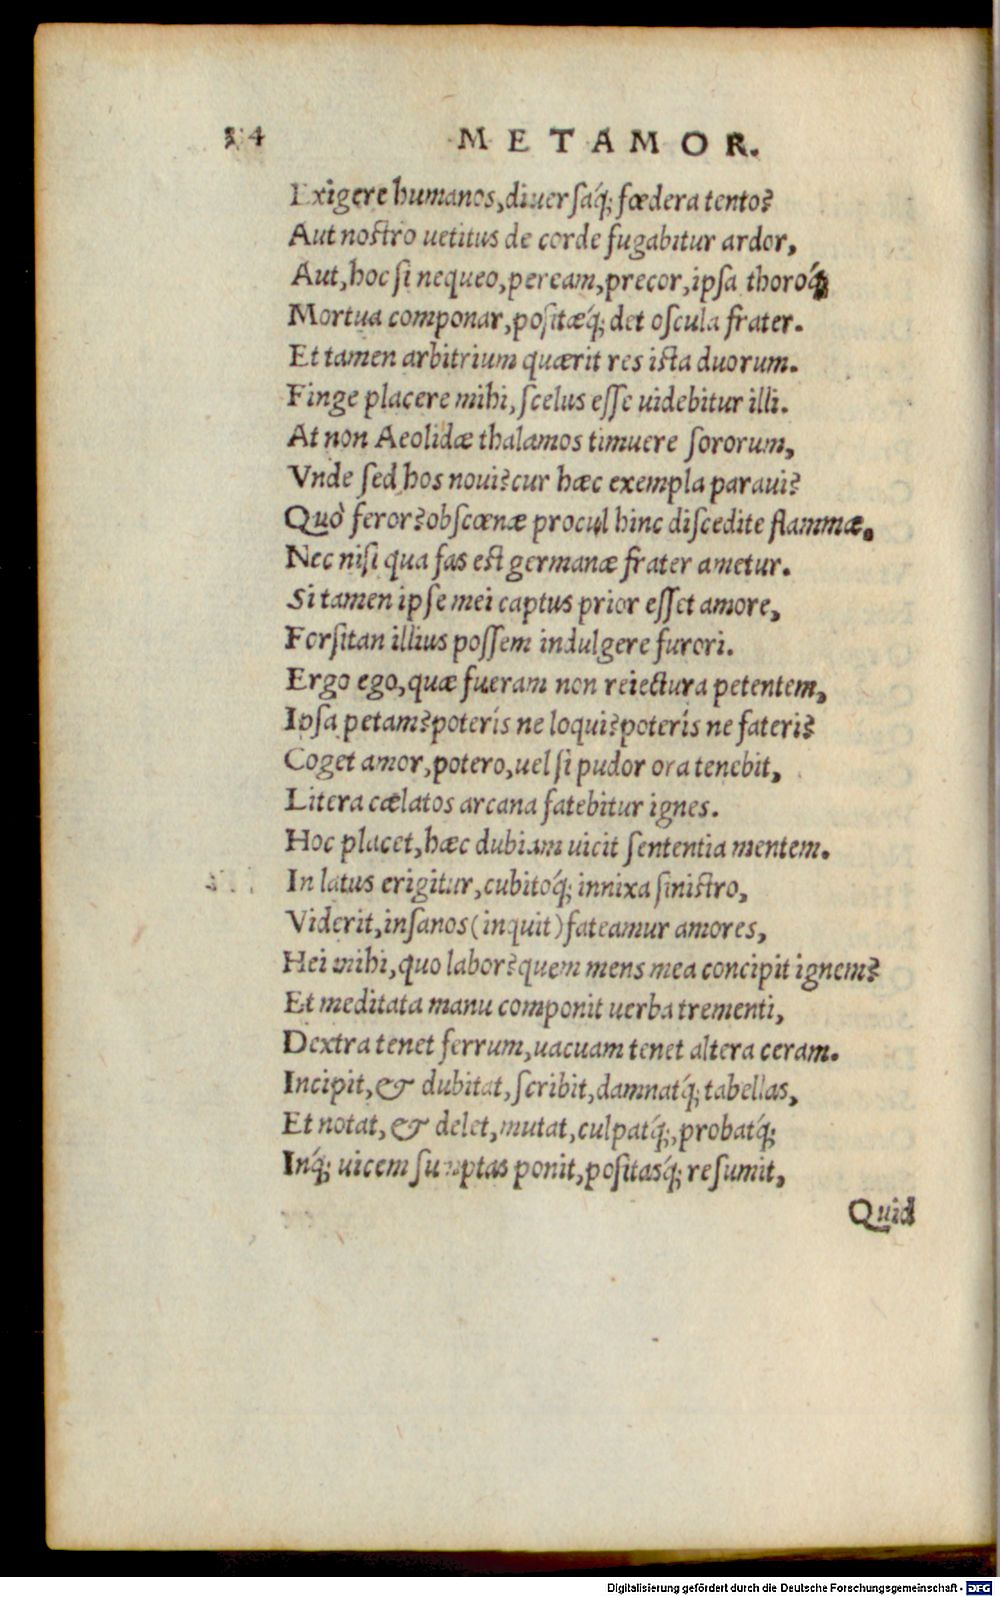 METAMOR.
Exigere humanos, diuersaq́; fœdera tento?
Aut nostro uetitus de corde fugabitur ardor,
Aut, hoc si nequeo, peream, precor, ipsa thoroq́;
Mortua componar, positæq́; det oscula frater.
Et tamen arbitrium quærit res ista duorum.
Finge placere mihi, scelus esse uidebitur illi.
At non Aeolidæ thalamos timuere sororum,
Vnde sed hos noui? cur hæc exempla paraui?
Quò feror? obscœnæ procul hinc discedite flammæ.
Nec nisi qua fas est germanæ frater ametur.
Si tamen ipse mei captus prior esset amore,
Forsitan illius possem indulgere furori.
Ergo ego, quæ fueram non reiectura petentem,
Ipsa petam? poterís ne loqui? poterís ne fateri?
Coget amor, potero, uel si pudor ora tenebit,
Litera cælatos arcana fatebitur ignes.
Hoc placet, hæc dubiam uicit sententia mentem.
In latus erigitur, cubitoq́; innixa sinistro,
Viderit, insanos (inquit) fateamur amores,
Hei mihi, quo labor? quem mens mea concipit ignem?
Et meditata manu componit uerba trementi,
Dextra tenet ferrum, uacuam tenet altera ceram.
Incipit, & dubitat, scribit, damnatq́; tabellas,
Et notat, & delet, mutat, culpatq́;, probatq́;
Inq́; uicem sumptas ponit, positasq́; resumit,
Quid
Digitalisierung gefördert durch die Deutsche Forschungsgemeinschaft - DFG